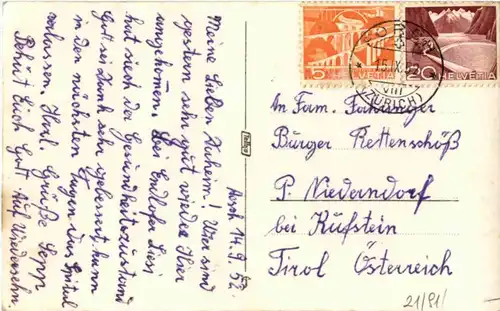 Aesch 14.9.52.
Meine Lieben Daheim! Wir sind
gestern sehr gut wieder hier
angekommen. Bei Endlhofer Liesi
hat sich der Gesundheitszustand
Gott sei Dank sehr gebessert, kann
in den nächsten Tagen das Spital
verlassen. Herzl. Grüße Sepp
Behüt Euch Gott Auf Wiedersehn.
5 HELVETIA
20 HELVETIA
15.IX.
VIII
(ZÜRICH)
An Fam. Fahringer
Bürger Rettenschöß
P. Niederndorf
bei Kufstein
Tirol Österreich
21/91/